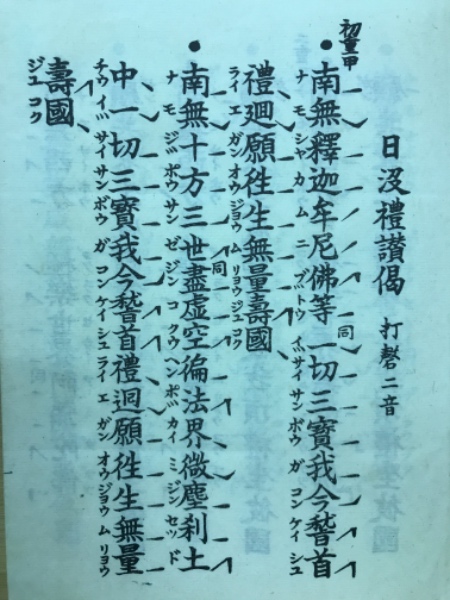 日没禮讃偈 打磬二音
初重甲
南無釋迦牟尼佛等一切三寶我今稽首
ナモシャカムニブットウイッサイサンボウガコンケイシュ
同
禮廻願徃生無量壽國
ライエガンオウジョウムリョウジュコク
南無十方三世盡虚空徧法界微塵刹土
ナモジッポウサンゼジンコクウヘンポッカイミジンセッド
同
中一切三寶我今稽首禮廻願徃生無量
チウイッサイサンボウガコンケイシュライエガンオウジョウムリョウ
壽國
ジュコク